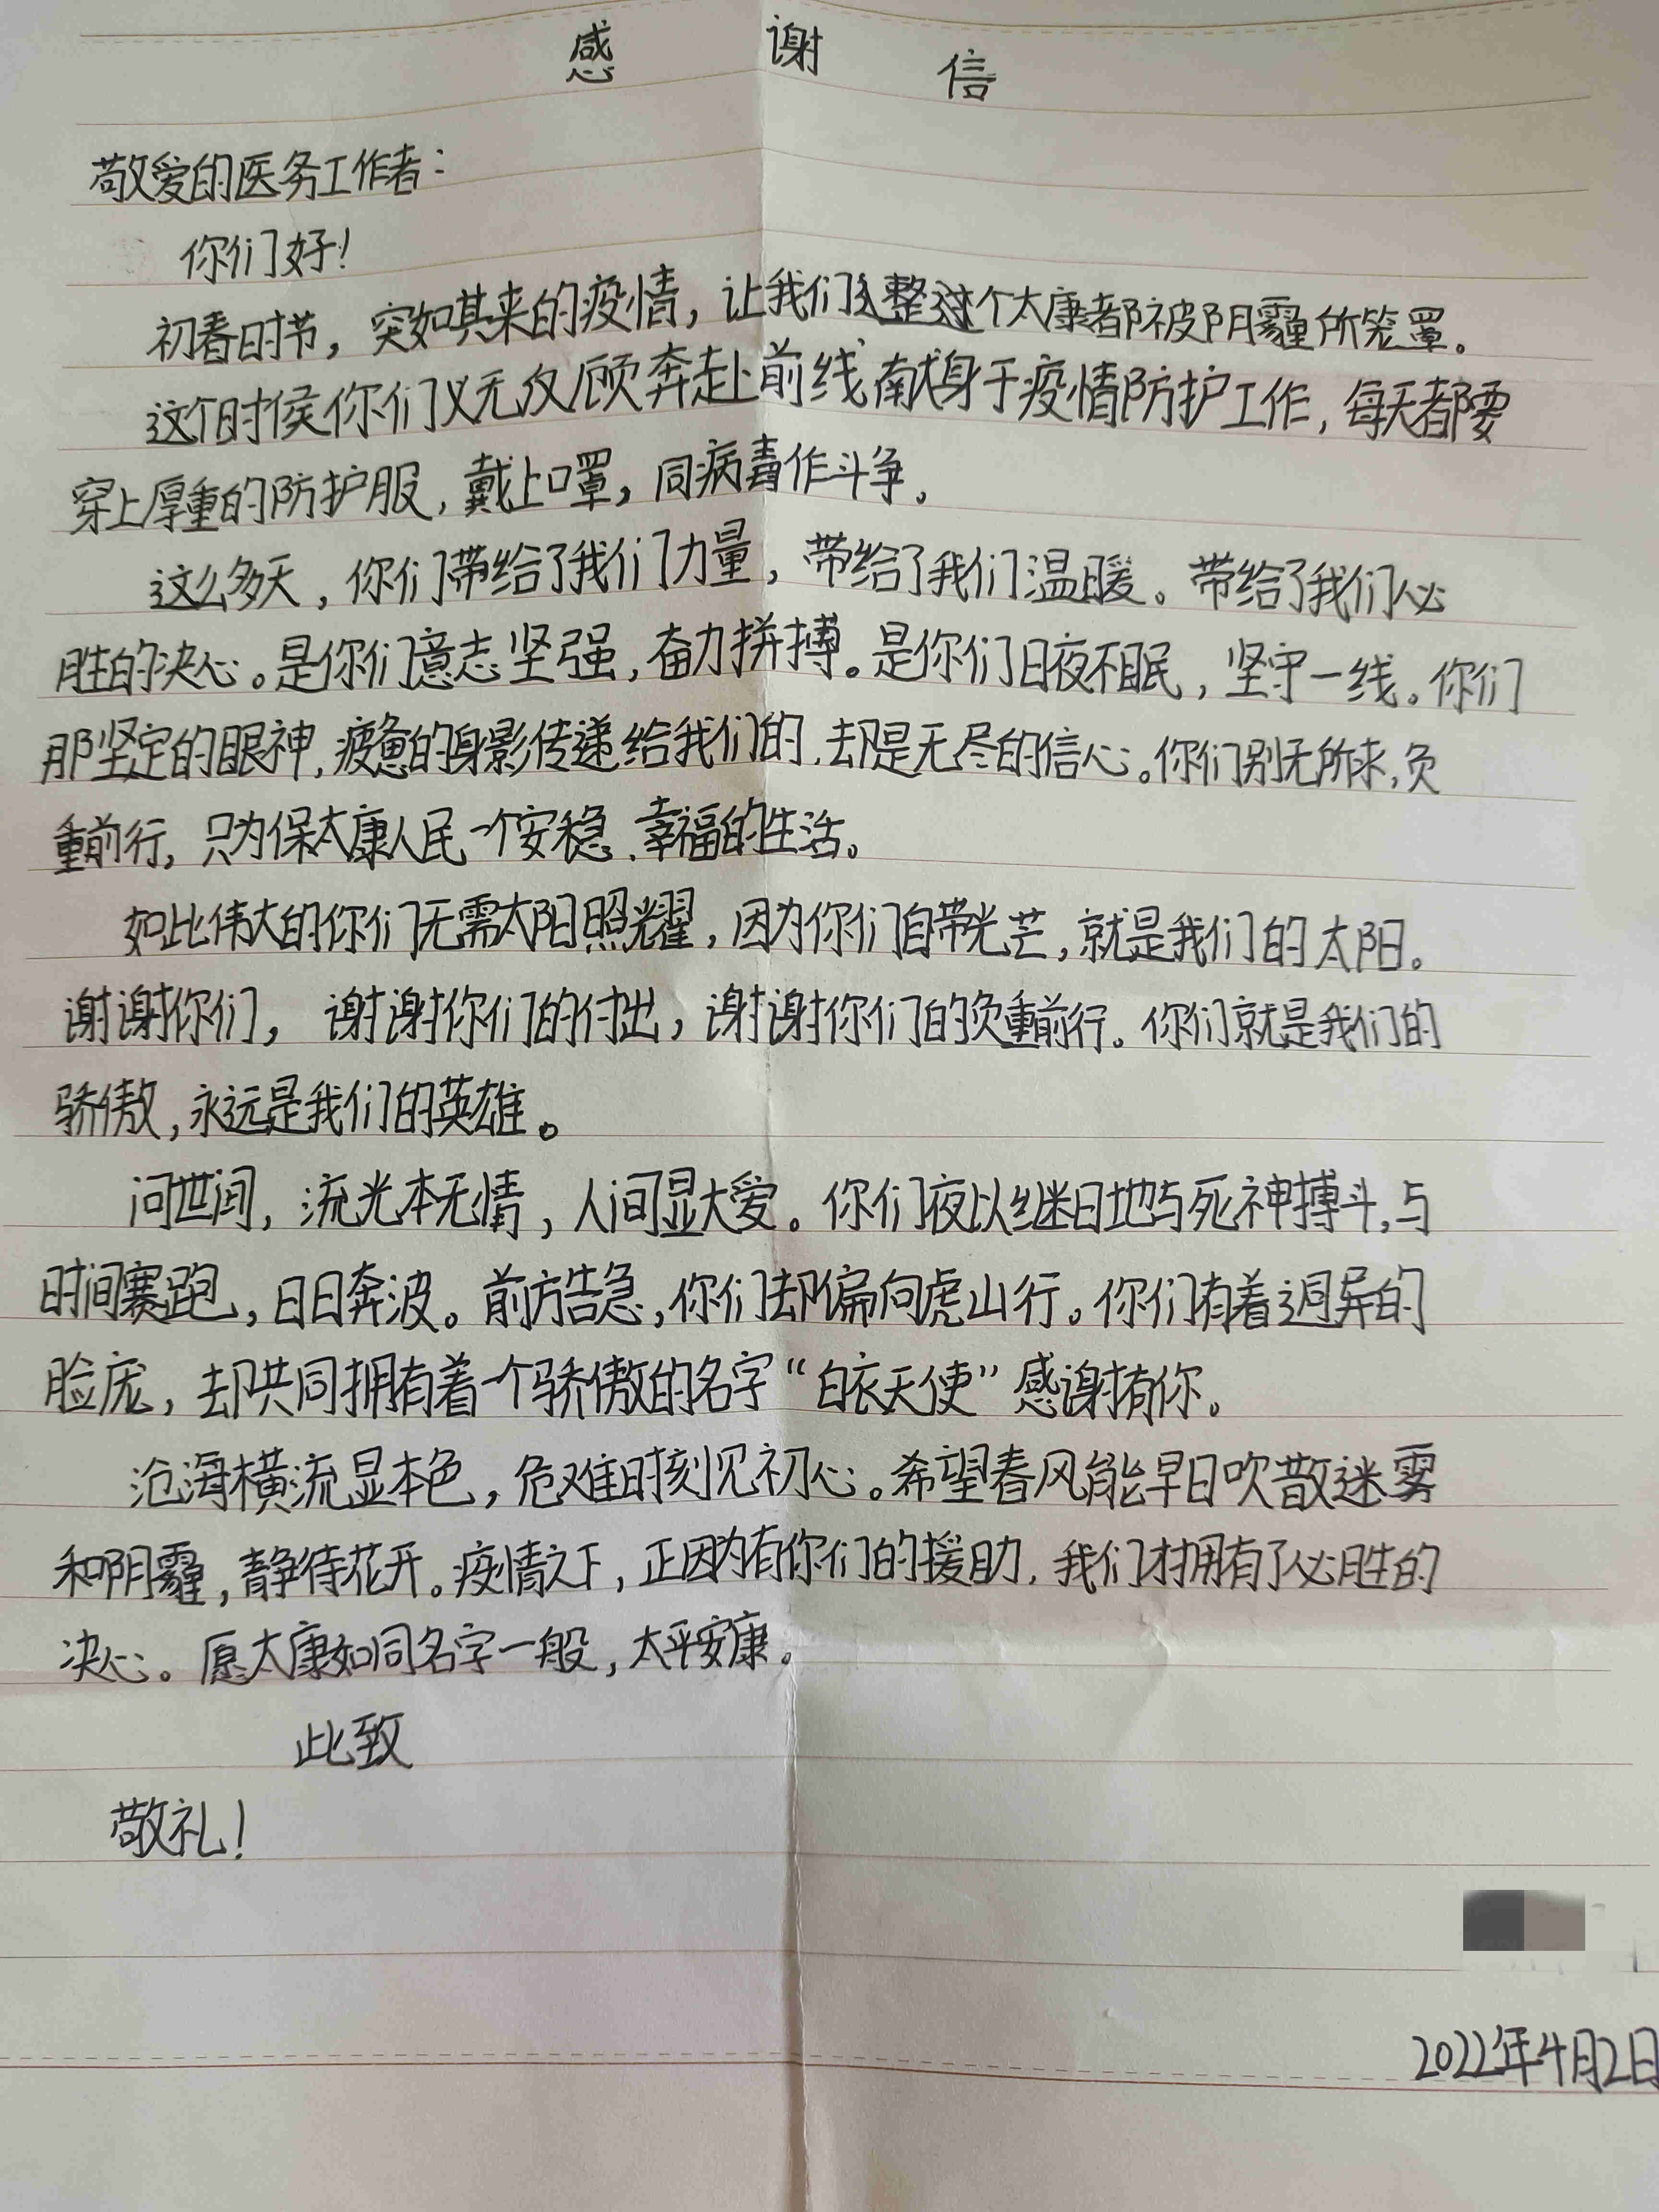 感谢信
敬爱的医务工作者：
你们好！
初春时节，突如其来的疫情，让我们整个太康都被阴霾所笼罩。
这个时侯你们义无反顾奔赴前线,献身于疫情防护工作，每天都要
穿上厚重的防护服，戴上口罩，同病毒作斗争。
这么多天，你们带给了我们力量，带给了我们温暖。带给了我们必
胜的决心。是你们意志坚强，奋力拼搏。是你们日夜不眠，坚守一线。你们
那坚定的眼神，疲惫的身影传递给我们的，却是无尽的信心。你们别无所求，负
重前行，只为保太康人民一个安稳、幸福的生活。
如此伟大的你们无需太阳照耀，因为你们自带光芒，就是我们的太阳。
谢谢你们，谢谢你们的付出，谢谢你们的负重前行。你们就是我们的
骄傲，永远是我们的英雄。
问世间，流光本无情，人间显大爱。你们夜以继日地与死神搏斗，与
时间赛跑，日日奔波。前方告急，你们却偏向虎山行。你们有着迥异的
脸庞，却共同拥有着一个骄傲的名字“白衣天使”感谢有你。
沧海横流显本色，危难时刻见初心。希望春风能早日吹散迷雾
和阴霾，静待花开。疫情之下，正因为有你们的援助，我们才拥有了必胜的
决心。愿太康如同名字一般，太平安康。
此致
敬礼！
2022年4月2日